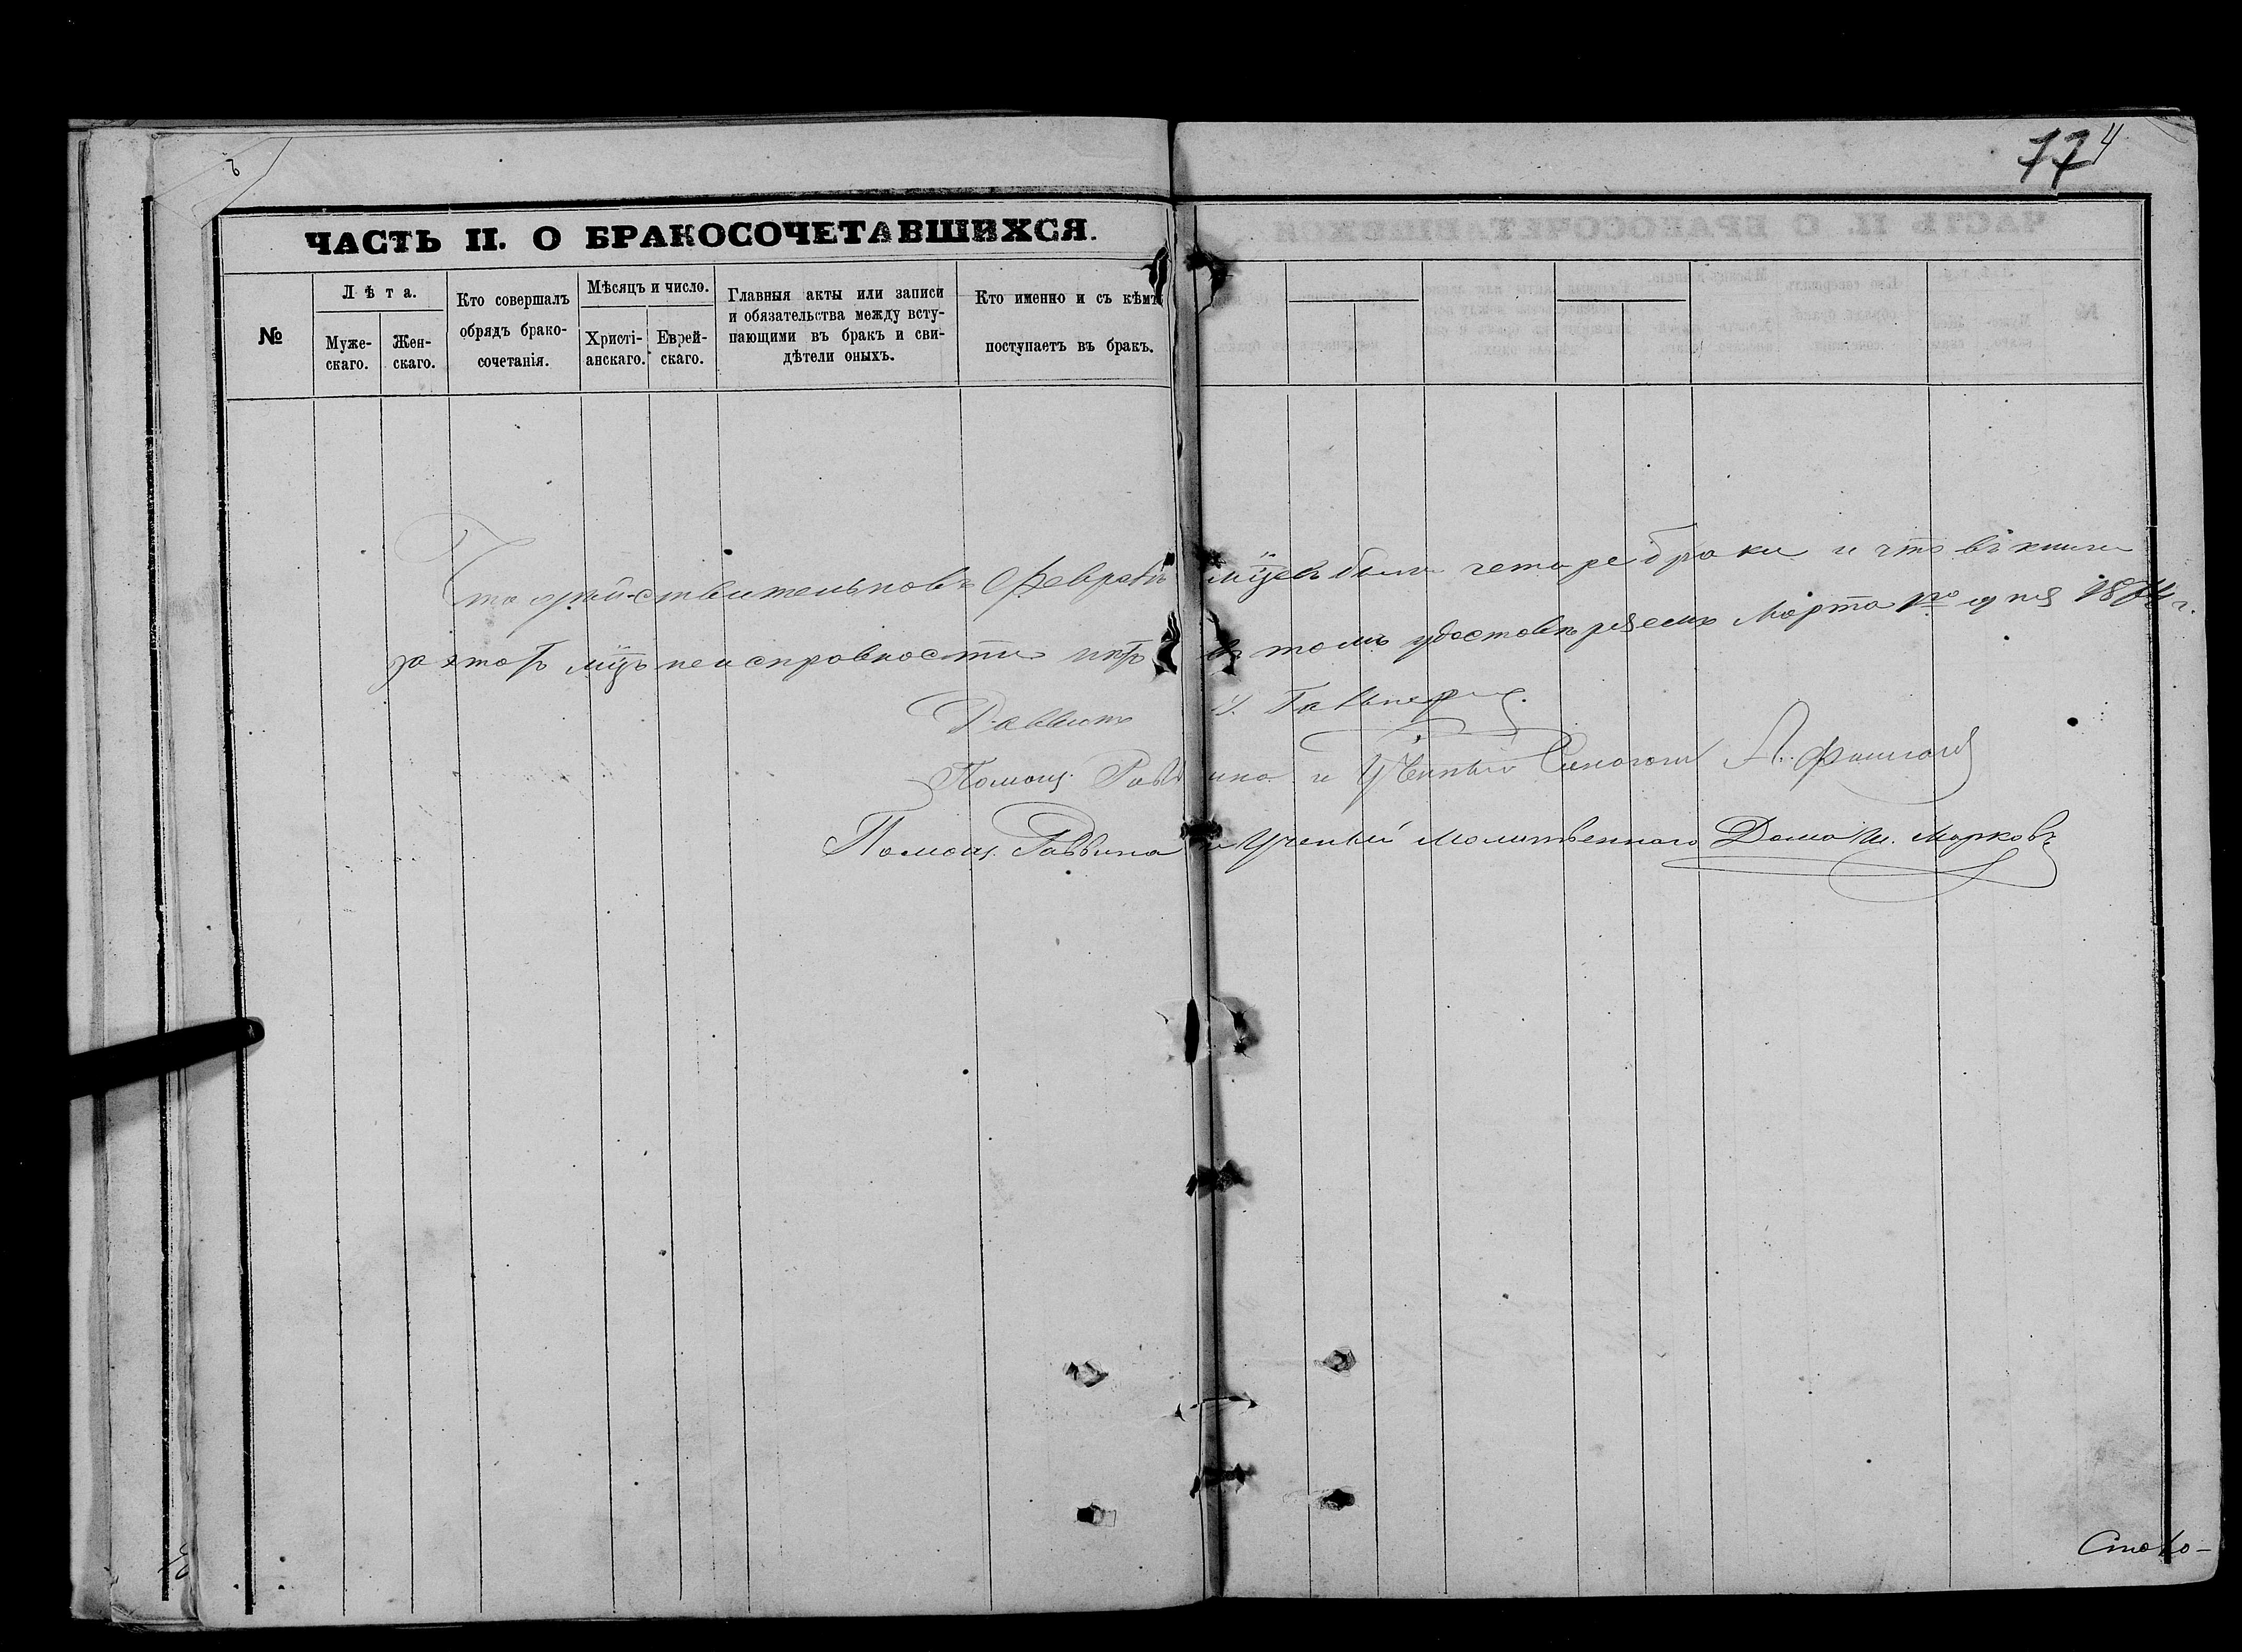 77 4
ЧАСТЬ II. О БРАКОСОЧЕТАВШИХСЯ.
№
Лѣта.
Муже-
скаго.
Жен-
скаго.
Кто совершалъ
обрядъ брако-
сочетанія.
Мѣсяцъ и число.
Христі-
анскаго.
Еврей-
скаго.
Главныя акты или записи
и обязательства между всту-
пающими въ бракъ и сви-
дѣтели оныхъ.
Кто именно и съ кѣмъ
поступаетъ въ бракъ.
Что действительно въ Февралѣ мцѣ были четыре браки и что въ книги
за этотъ мцъ неисправности нѣтъ въ томъ удостовѣряемъ Марта 1го дня 1874 г.
Раввинъ
Помощ. Раввина и Ученый Синагоги А.
Помощ. Раввина и Ученый Молитвенного Дома Ш. Марковъ